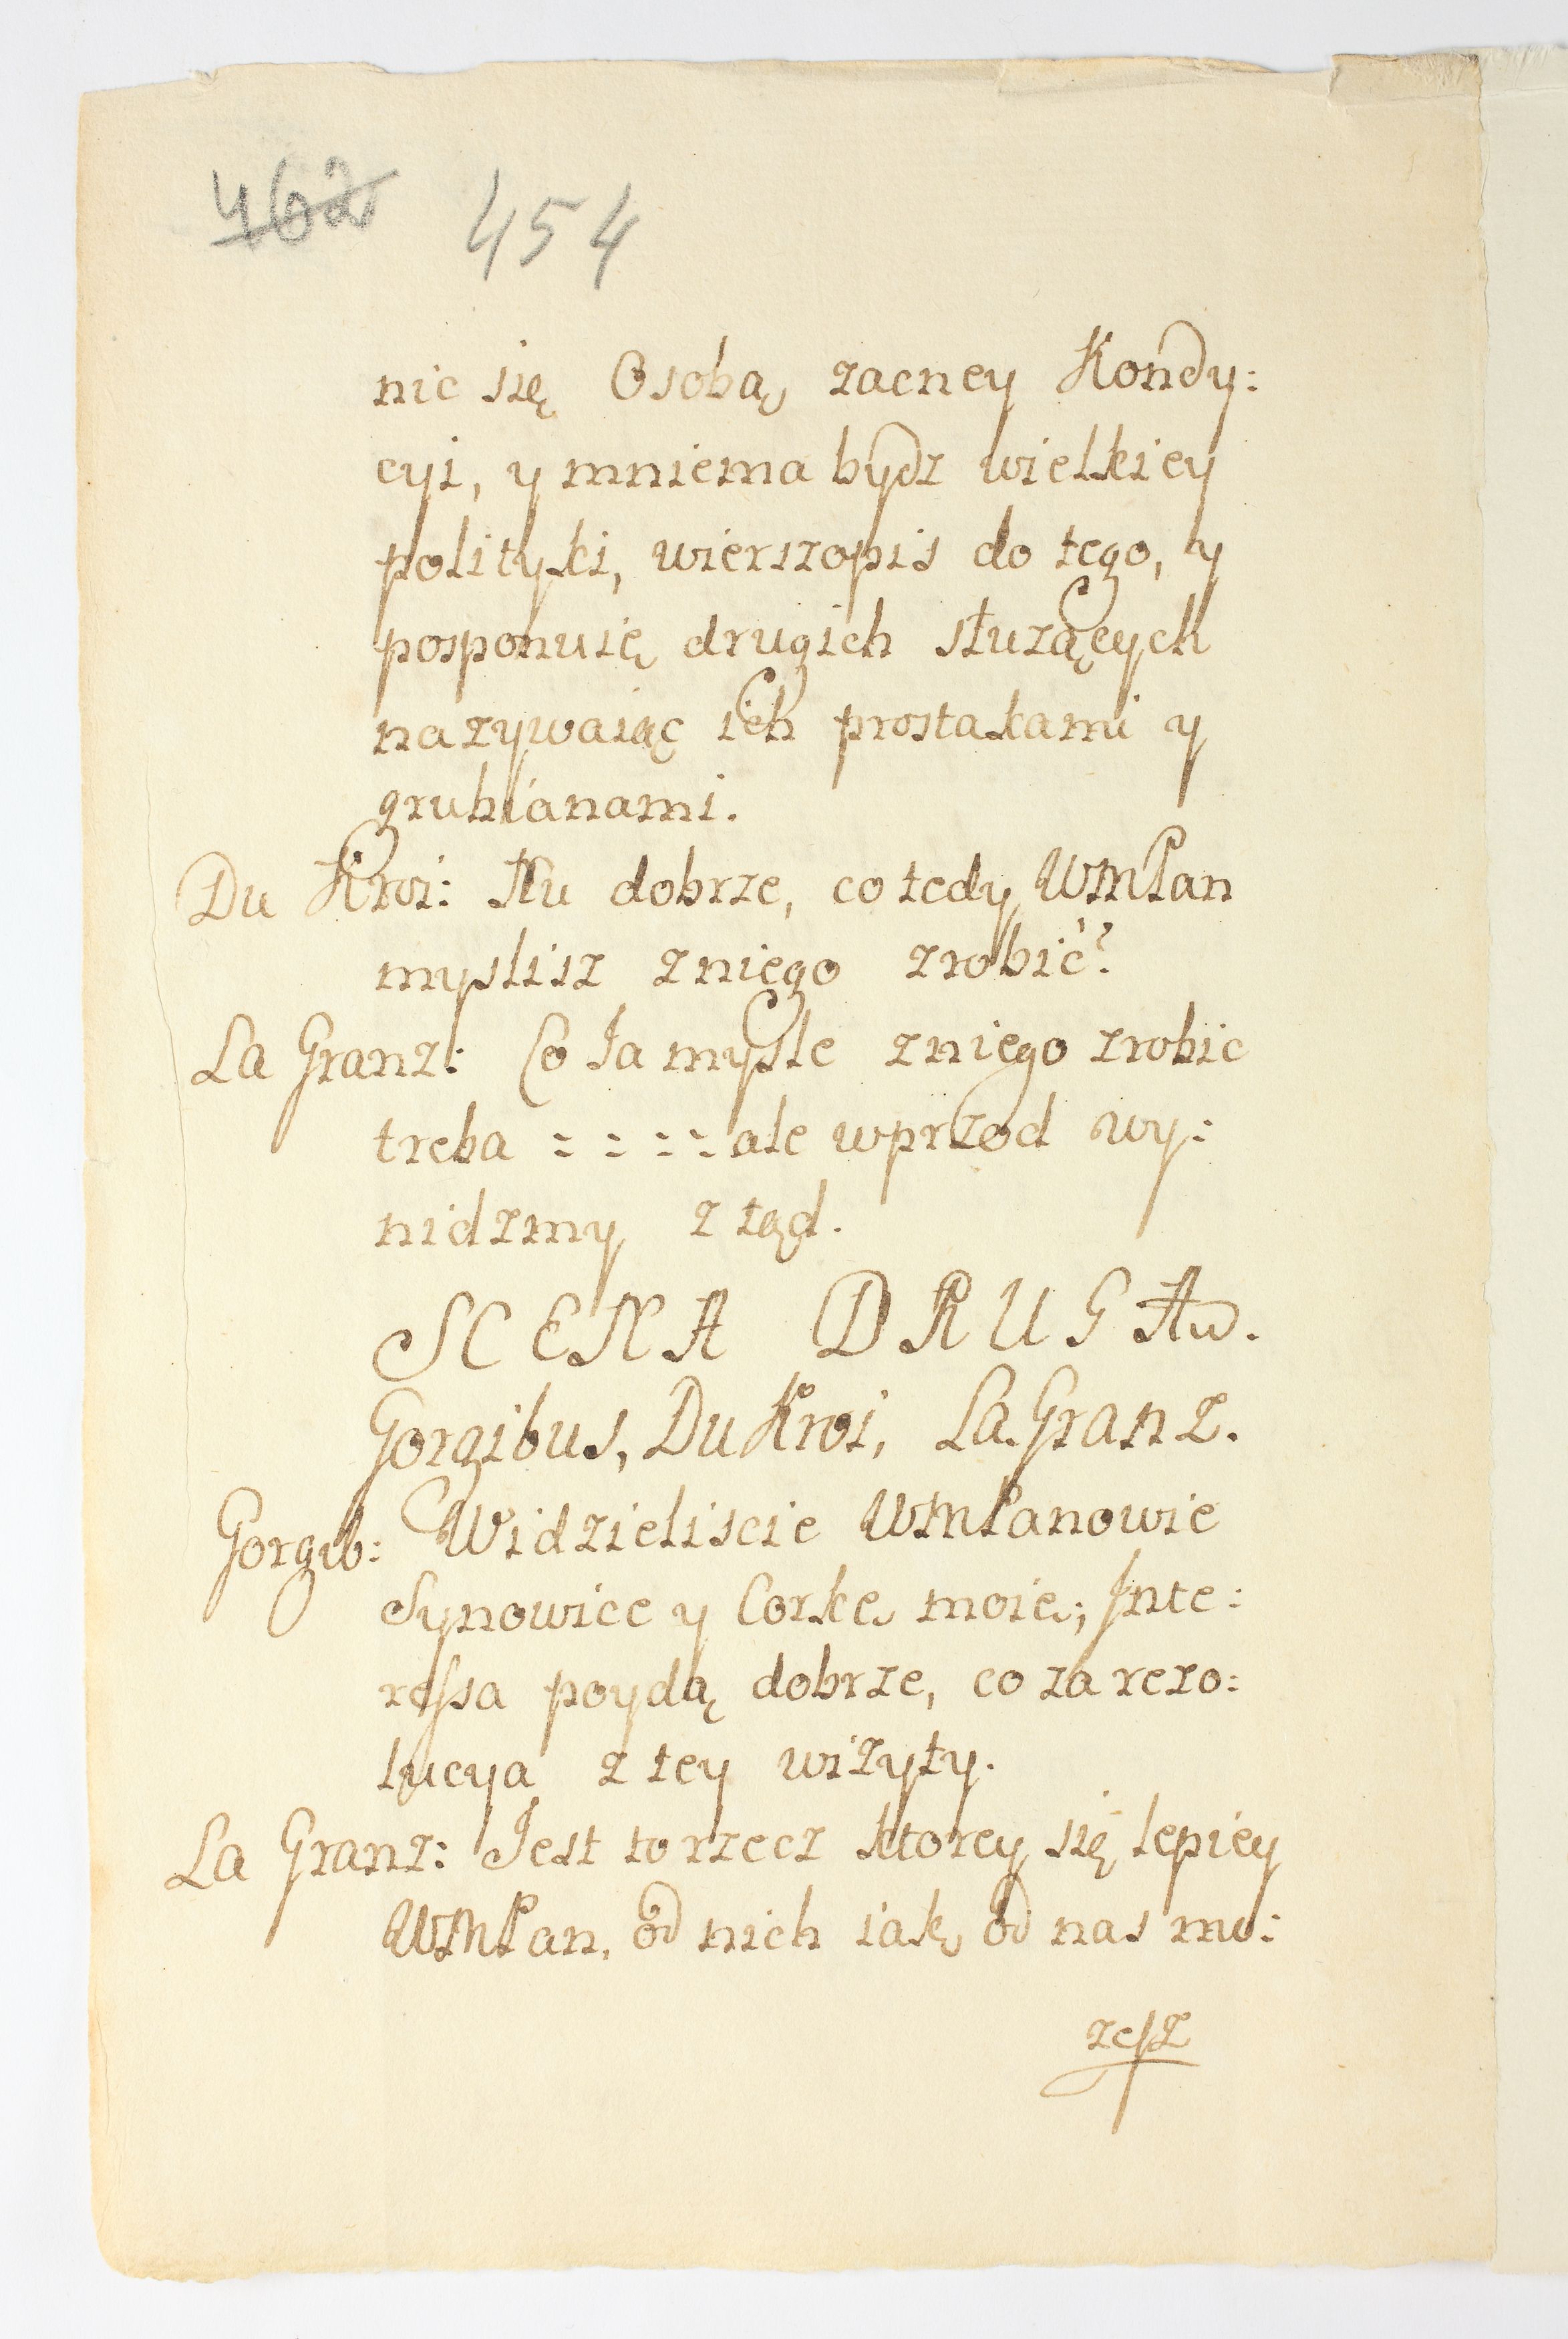 462 454
nic się Osobą zacney Kondy:
cyi, y mniema bydz wielkiey
polityki, wierszopis do tego, y
posponuię drugich służących
nazywaiąc ich prostakami y
grubianami.
Du Kroi: Nu dobrze, co tedy WMPan
myslisz z niego zrobić?
La Granz: Co Ia mysle z niego zrobic
treba :::: ale wprzod wy:
nidzmy z tąd.
SCENA DRUGA.
Gorgibus, Du Kroi, La Granz.
Gorgib: Widzieliscie WMPanowie
Synowice y Corkę moię; Inte:
ressa poydą dobrze, co za rezo:
lucya z tey wizyty.
La Granz: Jest to rzecz ktorey się lepiey
WMPan, od nich iak od nas mo:
zesz